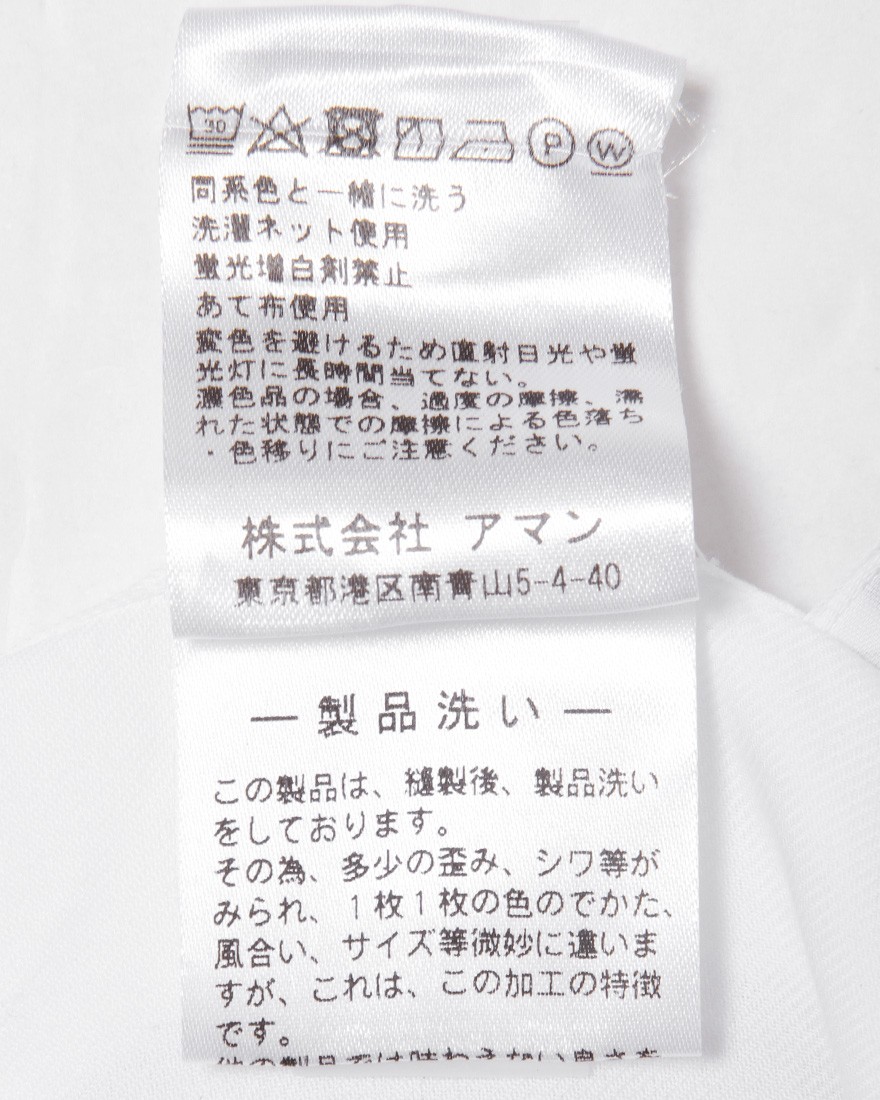 30
P
W
同系色と一緒に洗う
洗濯ネット使用
蛍光増白剤禁止
あて布使用
変色を避けるため直射日光や蛍
光灯に長時間当てない。
濃色品の場合、過度の摩擦、濡
れた状態での摩擦による色落ち
・色移りにご注意ください。
株式会社 アマン
東京都港区南青山5-4-40
— 製品洗い —
この製品は、縫製後、製品洗い
をしております。
その為、多少の歪み、シワ等が
みられ、1枚1枚の色のでかた、
風合い、サイズ等微妙に違いま
すが、これは、この加工の特徴
です。
他の製品では味わえない良さを